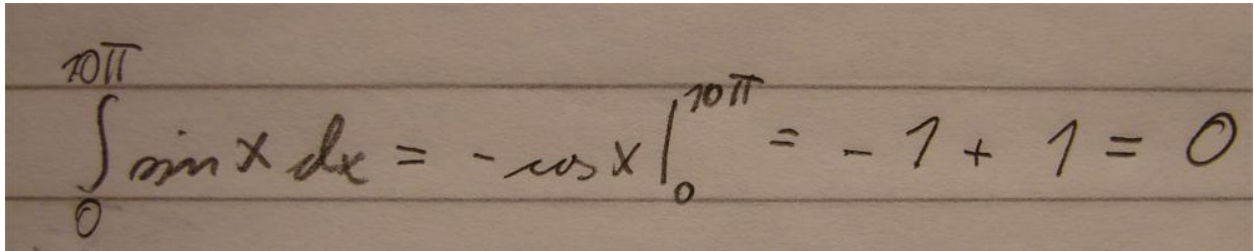 ∫₀^{10π} sin x dx = -cos x |₀^{10π} = -1 + 1 = 0